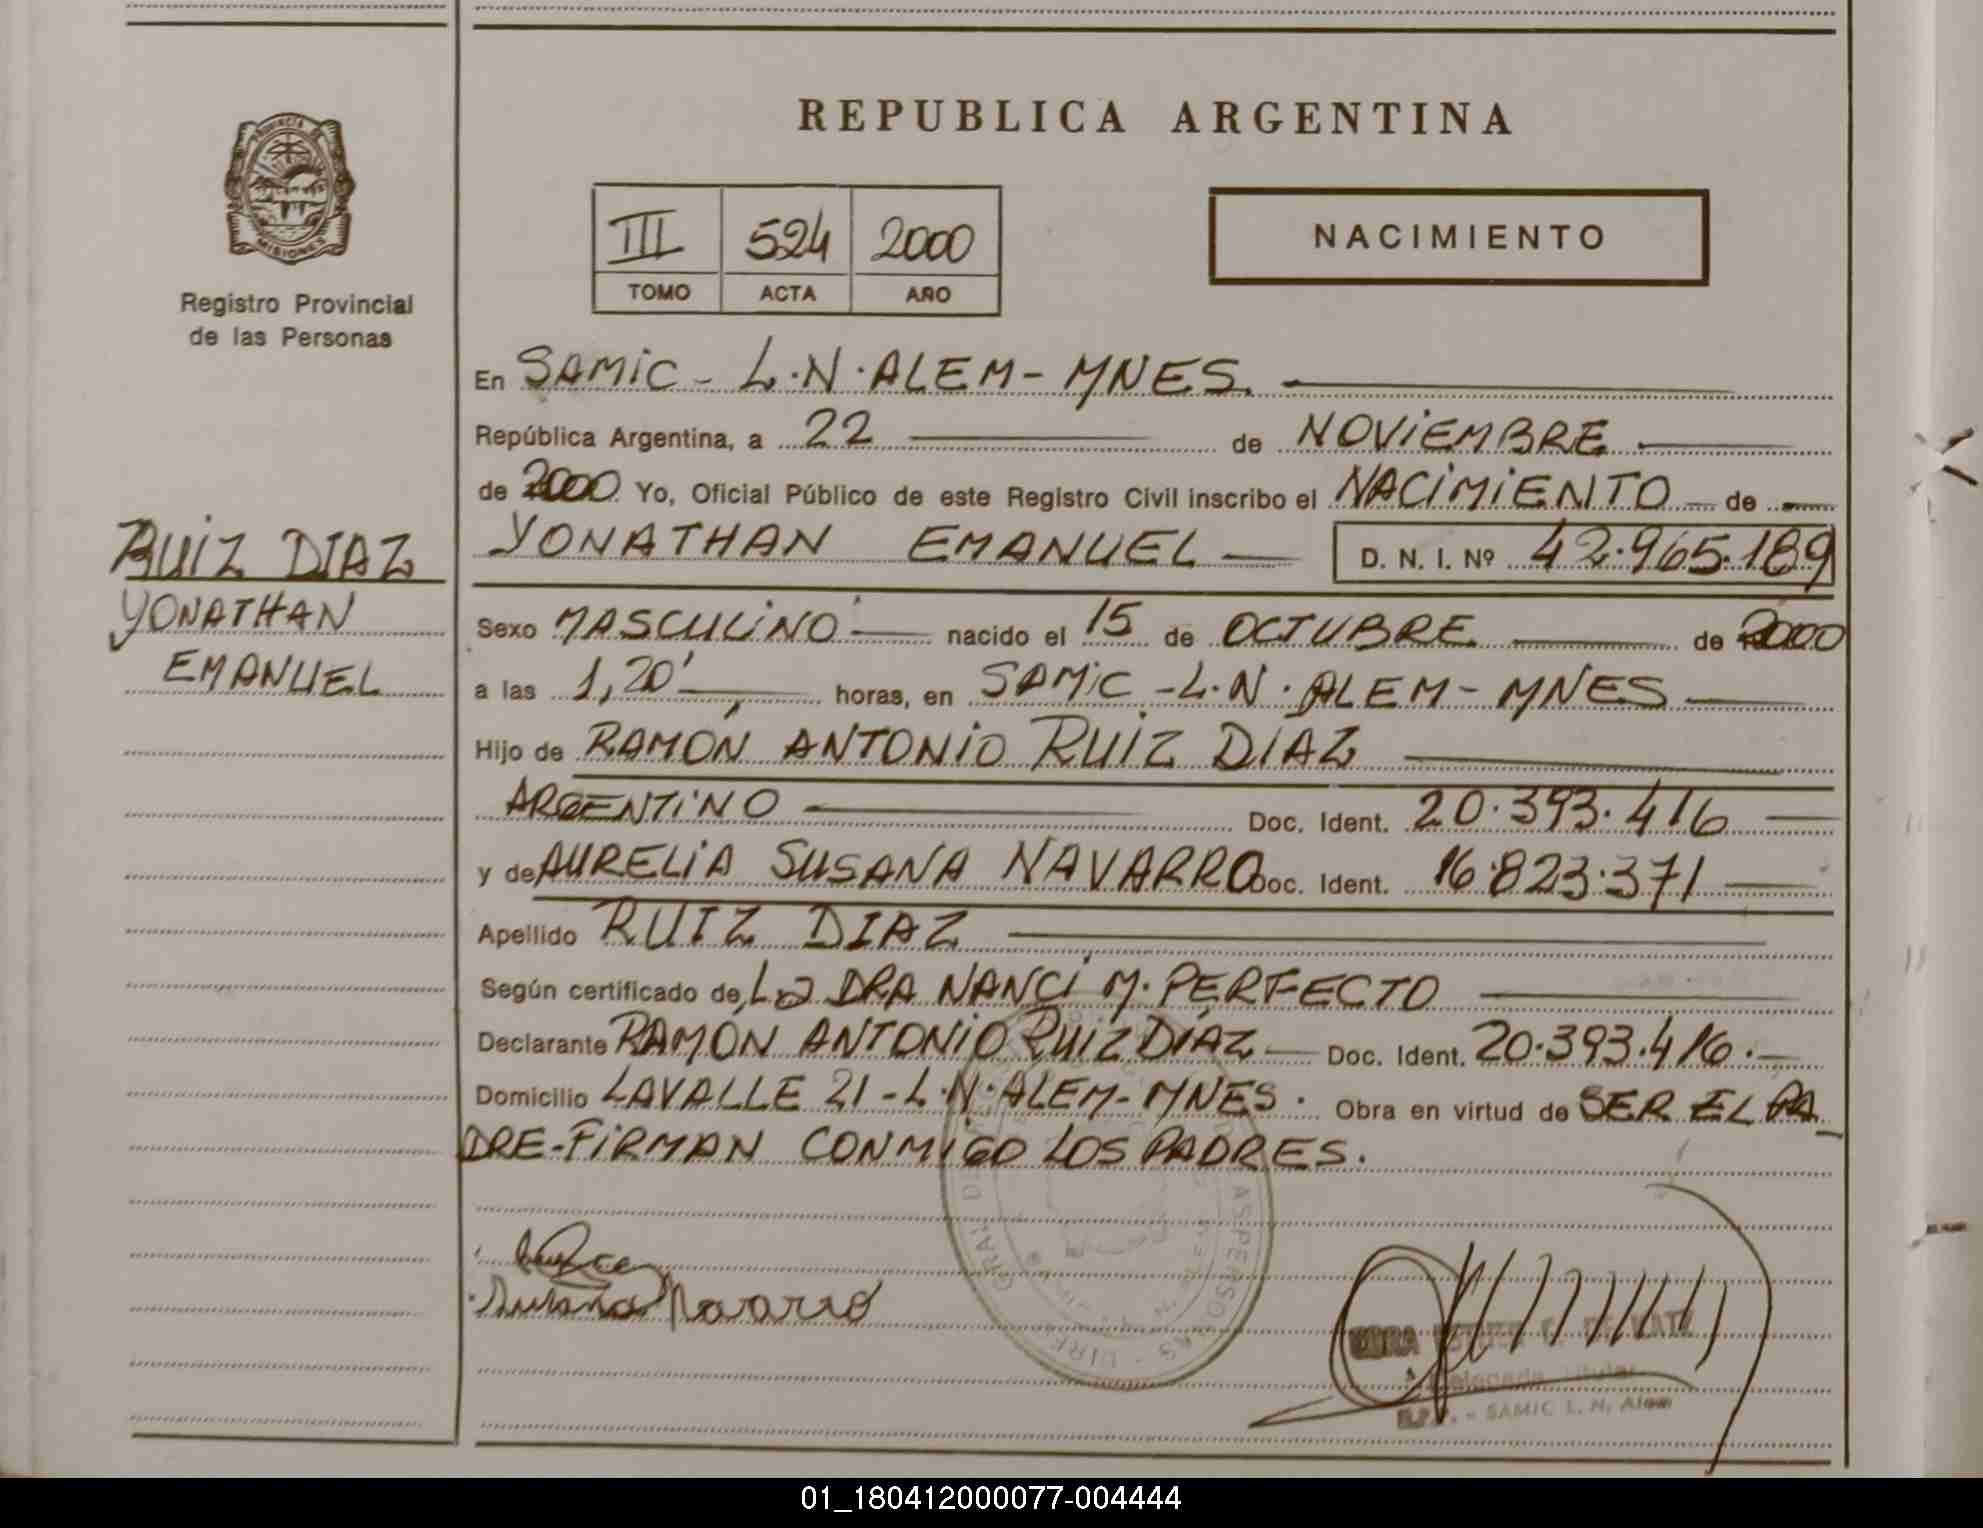 REPUBLICA ARGENTINA
PROVINCIA DE
MISIONES
Registro Provincial
de las Personas
III 524 2000
TOMO ACTA AÑO
NACIMIENTO
En SAMIC - L.N. ALEM - MNES.
República Argentina, a 22 de NOVIEMBRE
de 2000 Yo, Oficial Público de este Registro Civil inscribo el NACIMIENTO de
YONATHAN EMANUEL D. N. I. Nº 42.965.189
RUIZ DIAZ
YONATHAN
EMANUEL
Sexo MASCULINO nacido el 15 de OCTUBRE de 2000
a las 1,20' horas, en SAMIC - L.N. ALEM - MNES
Hijo de RAMÓN ANTONIO RUIZ DIAZ
ARGENTINO Doc. Ident. 20.393.416
y de AURELIA SUSANA NAVARRO Doc. Ident. 16.823.371
Apellido RUIZ DIAZ
Según certificado de La DRA NANCI M. PERFECTO
Declarante RAMÓN ANTONIO RUIZ DÍAZ Doc. Ident. 20.393.416.
Domicilio LAVALLE 21 - L.N. ALEM - MNES. Obra en virtud de SER EL PA
DRE - FIRMAN CONMIGO LOS PADRES.
Susana Navarro
Delegada Titular
SAMIC L. N. Alem
01_180412000077-004444